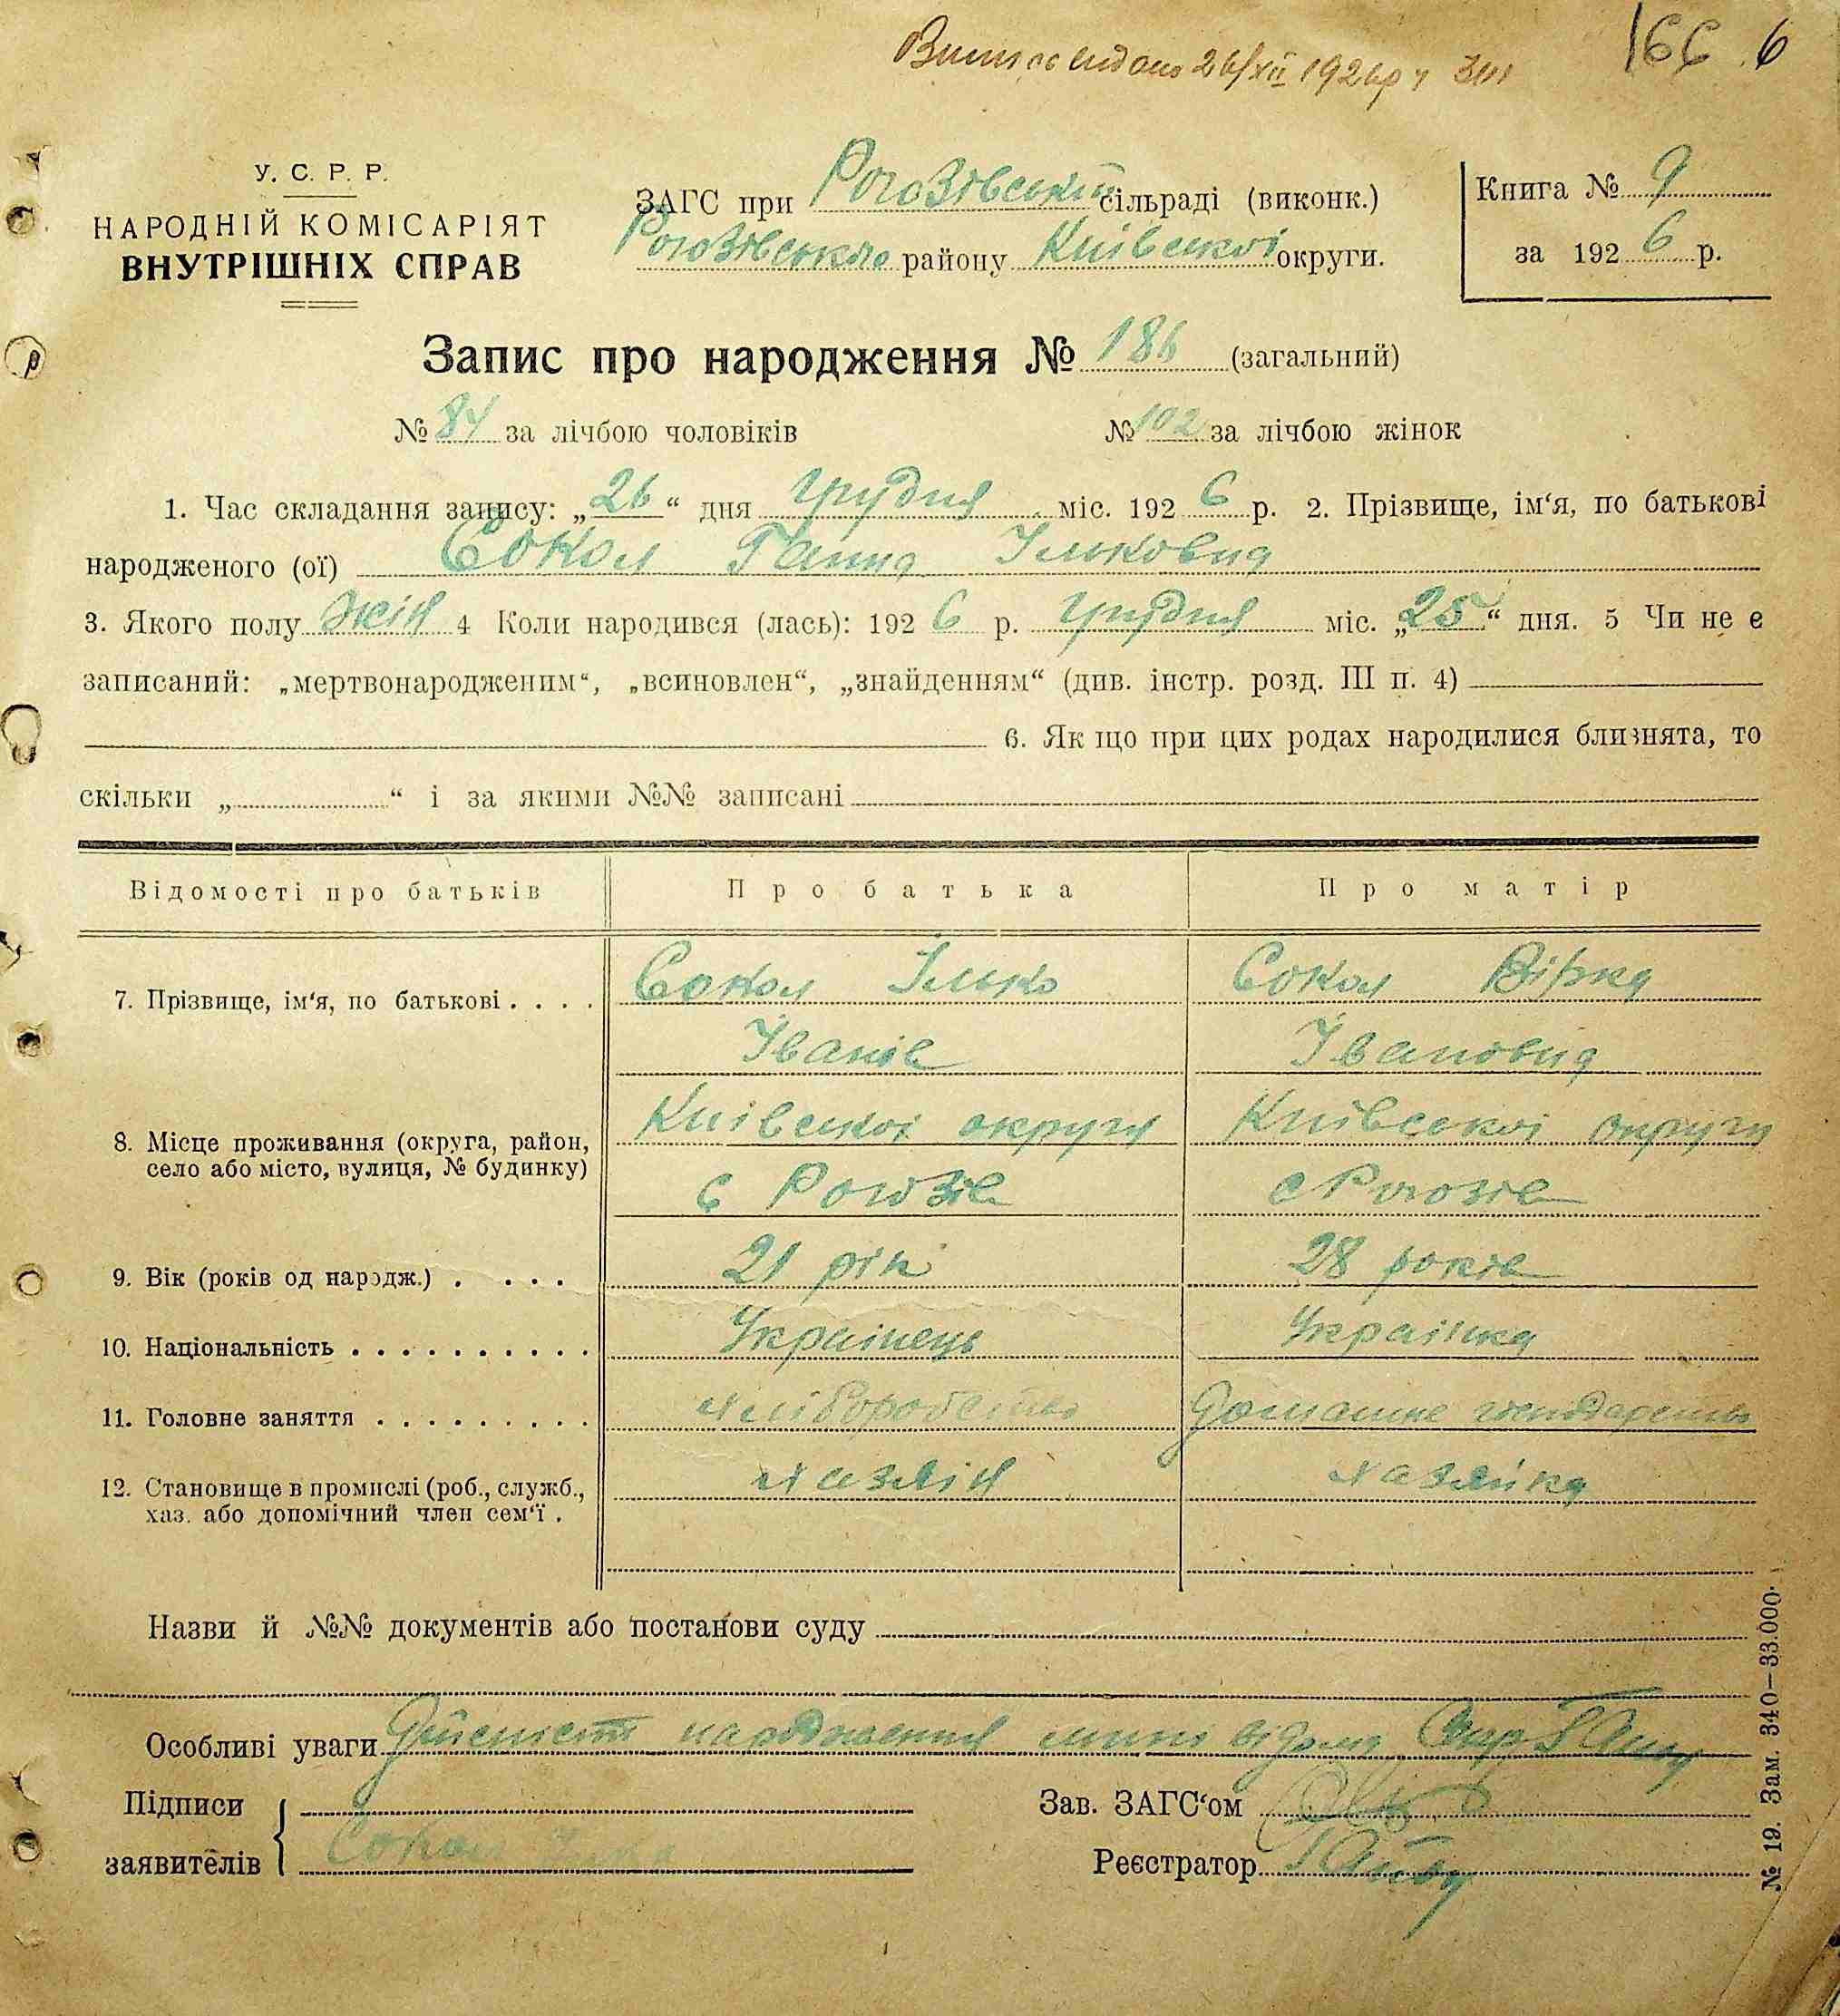 166 6
26/XII 1926р
У. С. Р. Р.
НАРОДНІЙ КОМІСАРІЯТ
ВНУТРІШНІХ СПРАВ
ЗАГС при Рогозівській сільраді (виконк.)
Рогозівського району Київської округи.
Книга № 9
за 1926 р.
Запис про народження № 186 (загальний)
№ 84 за лічбою чоловіків № 102 за лічбою жінок
1. Час складання запису: „26“ дня грудня міс. 1926 р. 2. Прізвище, ім‘я, по батькові
народженого (ої) Сокол Ганна Ільковна
3. Якого полу жін 4 Коли народився (лась): 1926 р. грудня міс. „25“ дня. 5 Чи не є
записаний: „мертвонародженим“, „всиновлен“, „знайденням“ (див. інстр. розд. III п. 4)
6. Як що при цих родах народилися близнята, то
скільки „ “ і за якими №№ записані
Відомості про батьків Про батька Про матір
7. Прізвище, ім‘я, по батькові . . . . Сокол Ілько Сокол Вірка
Іванів Івановна
8. Місце проживання (округа, район, село або місто, вулиця, № будинку) Київської округи Київської округи
с Рогозів с Рогозів
9. Вік (років од народж.) . . . . 21 рік 28 років
10. Національність . . . . . . . . . . Українець Українка
11. Головне заняття . . . . . . . . . хліборобство Домашнє господарство
12. Становище в промислі (роб., служб., хаз. або допомічний член сем‘ї . хазяін хазяйка
Назви й №№ документів або постанови суду
Особливі уваги Дійсність народження мині відома Секр
Підписи
заявителів Сокол
Зав. ЗАГС‘ом
Реєстратор
№ 19. Зам. 340–33.000.